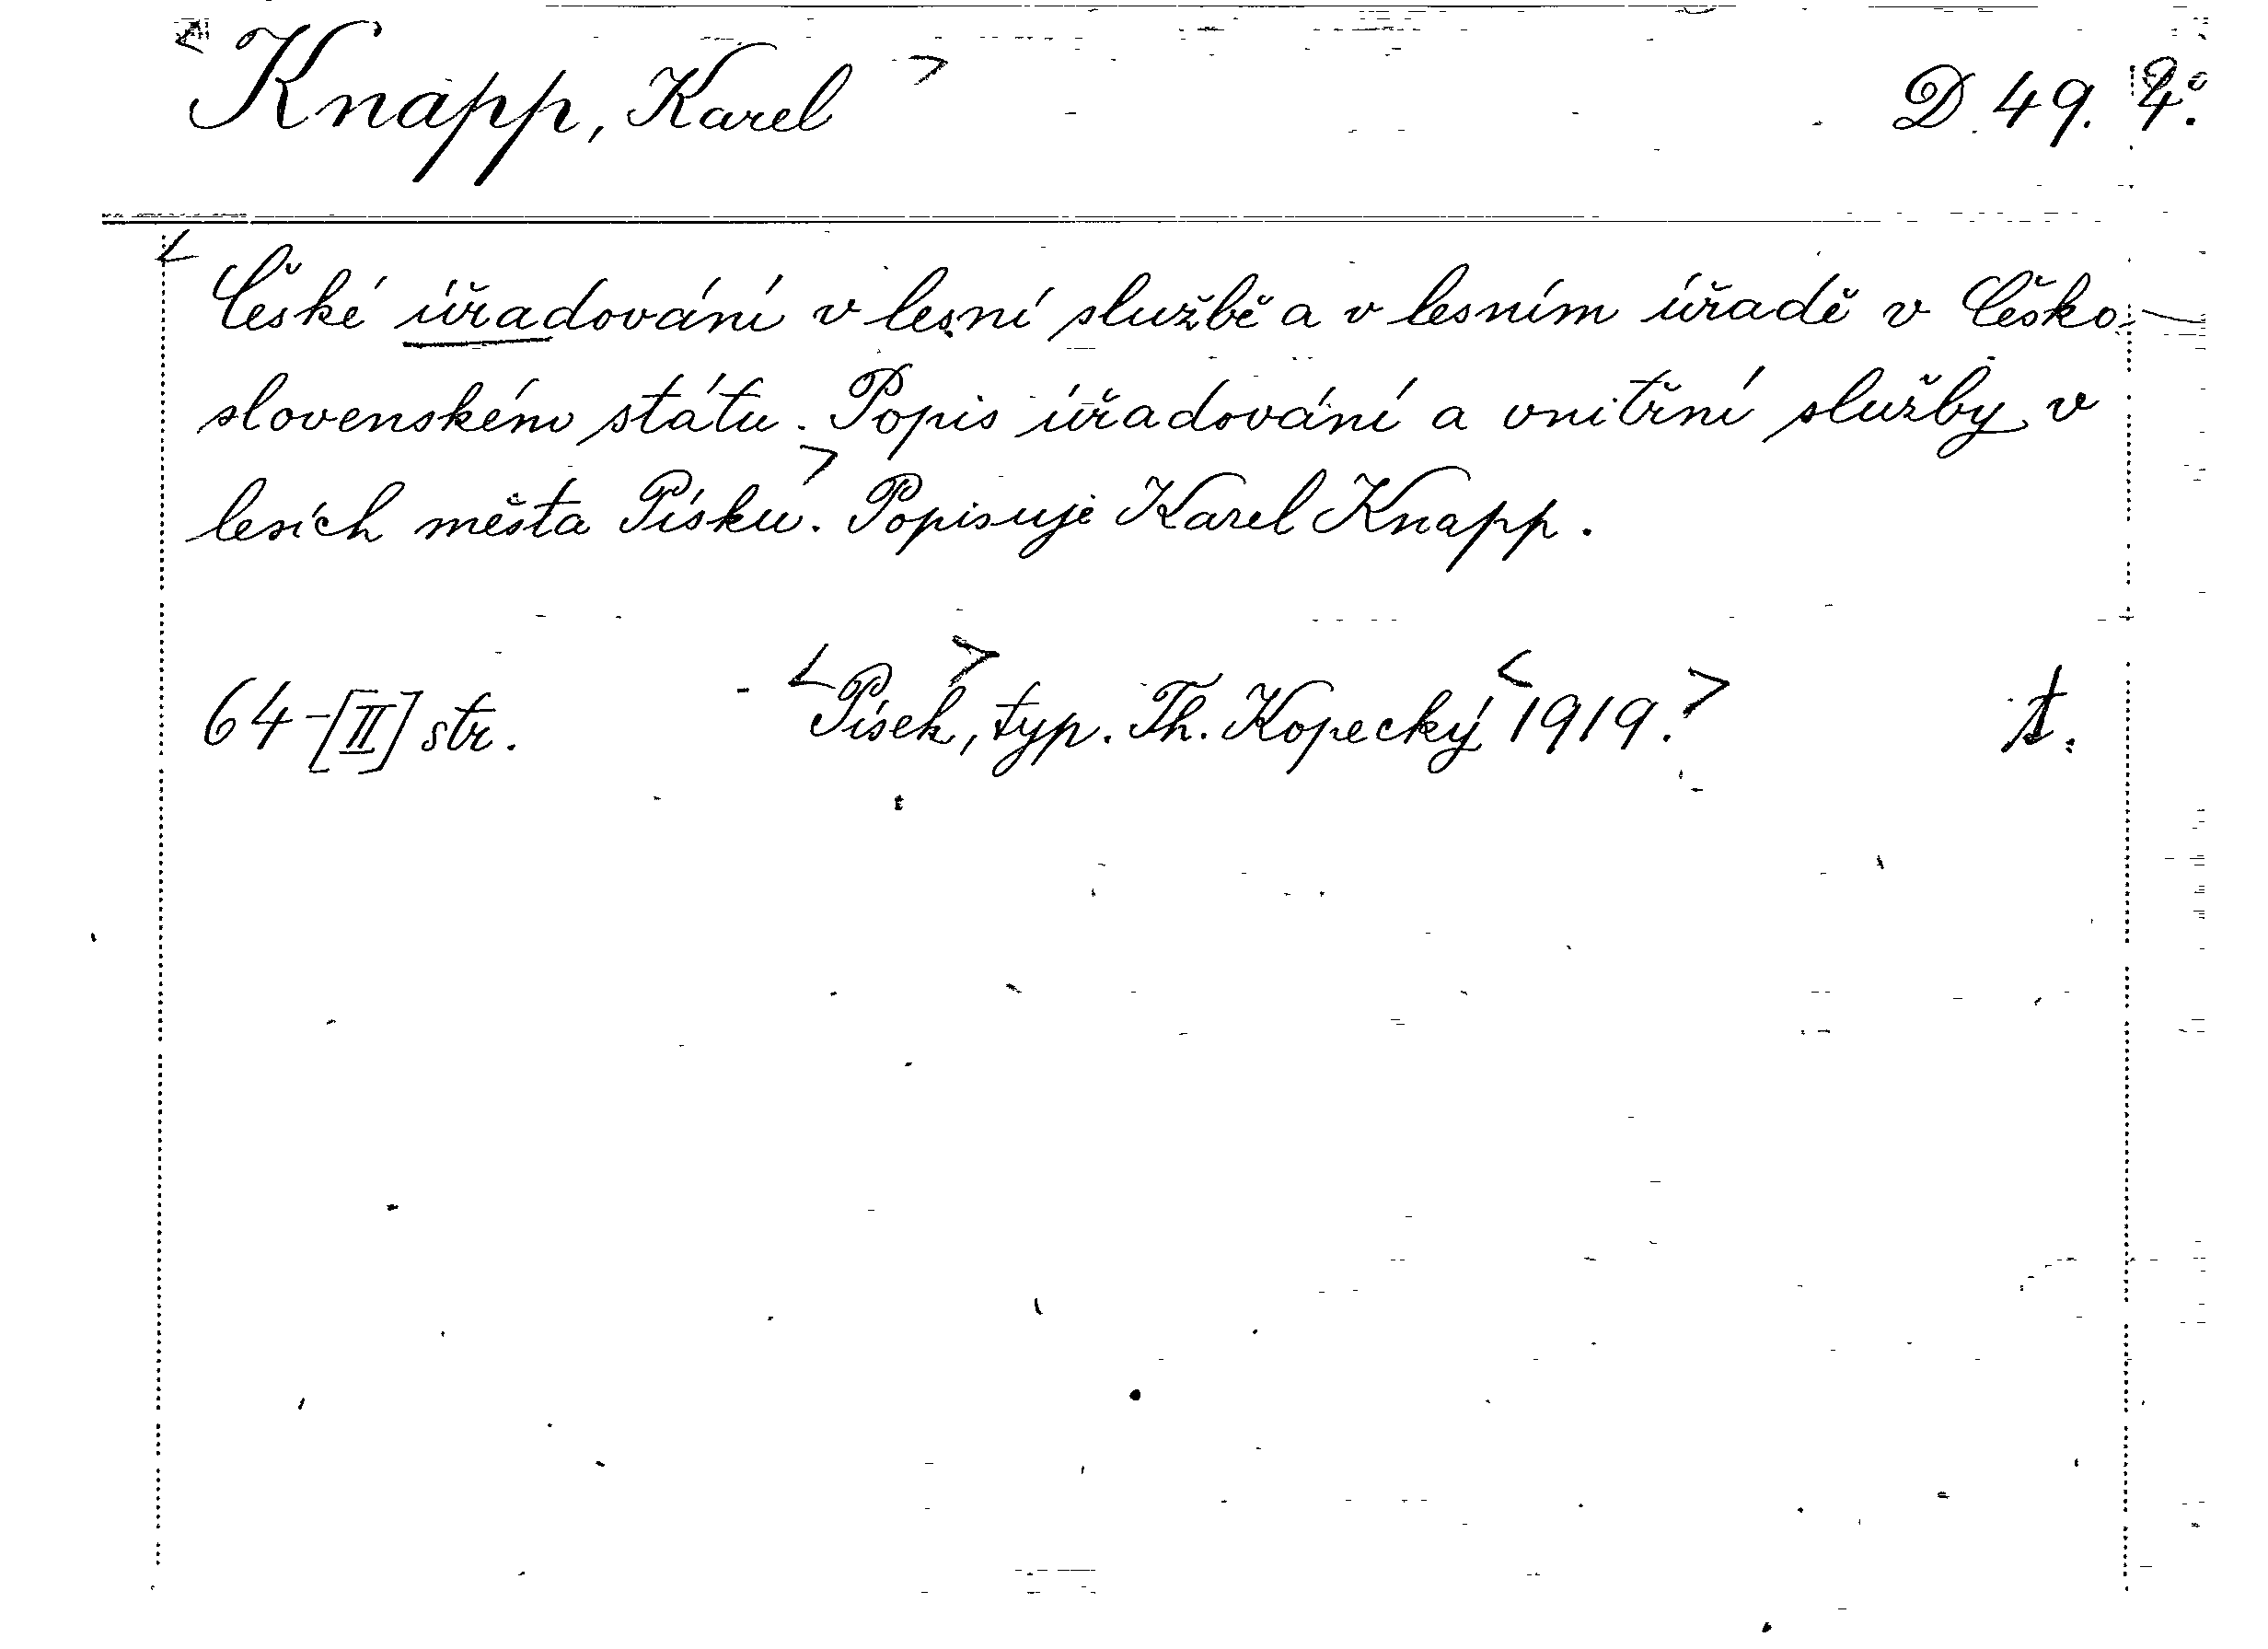 <Knapp, Karel> D 49. 4.
<České úřadování v lesní službě a v lesním úřadě v Česko-
slovenském státu. Popis úřadování a vnitřní služby v
lesích města Písku>. Popisuje Karel Knapp.
64-[II] str. <Písek>, typ. Th. Kopecký <1919.>